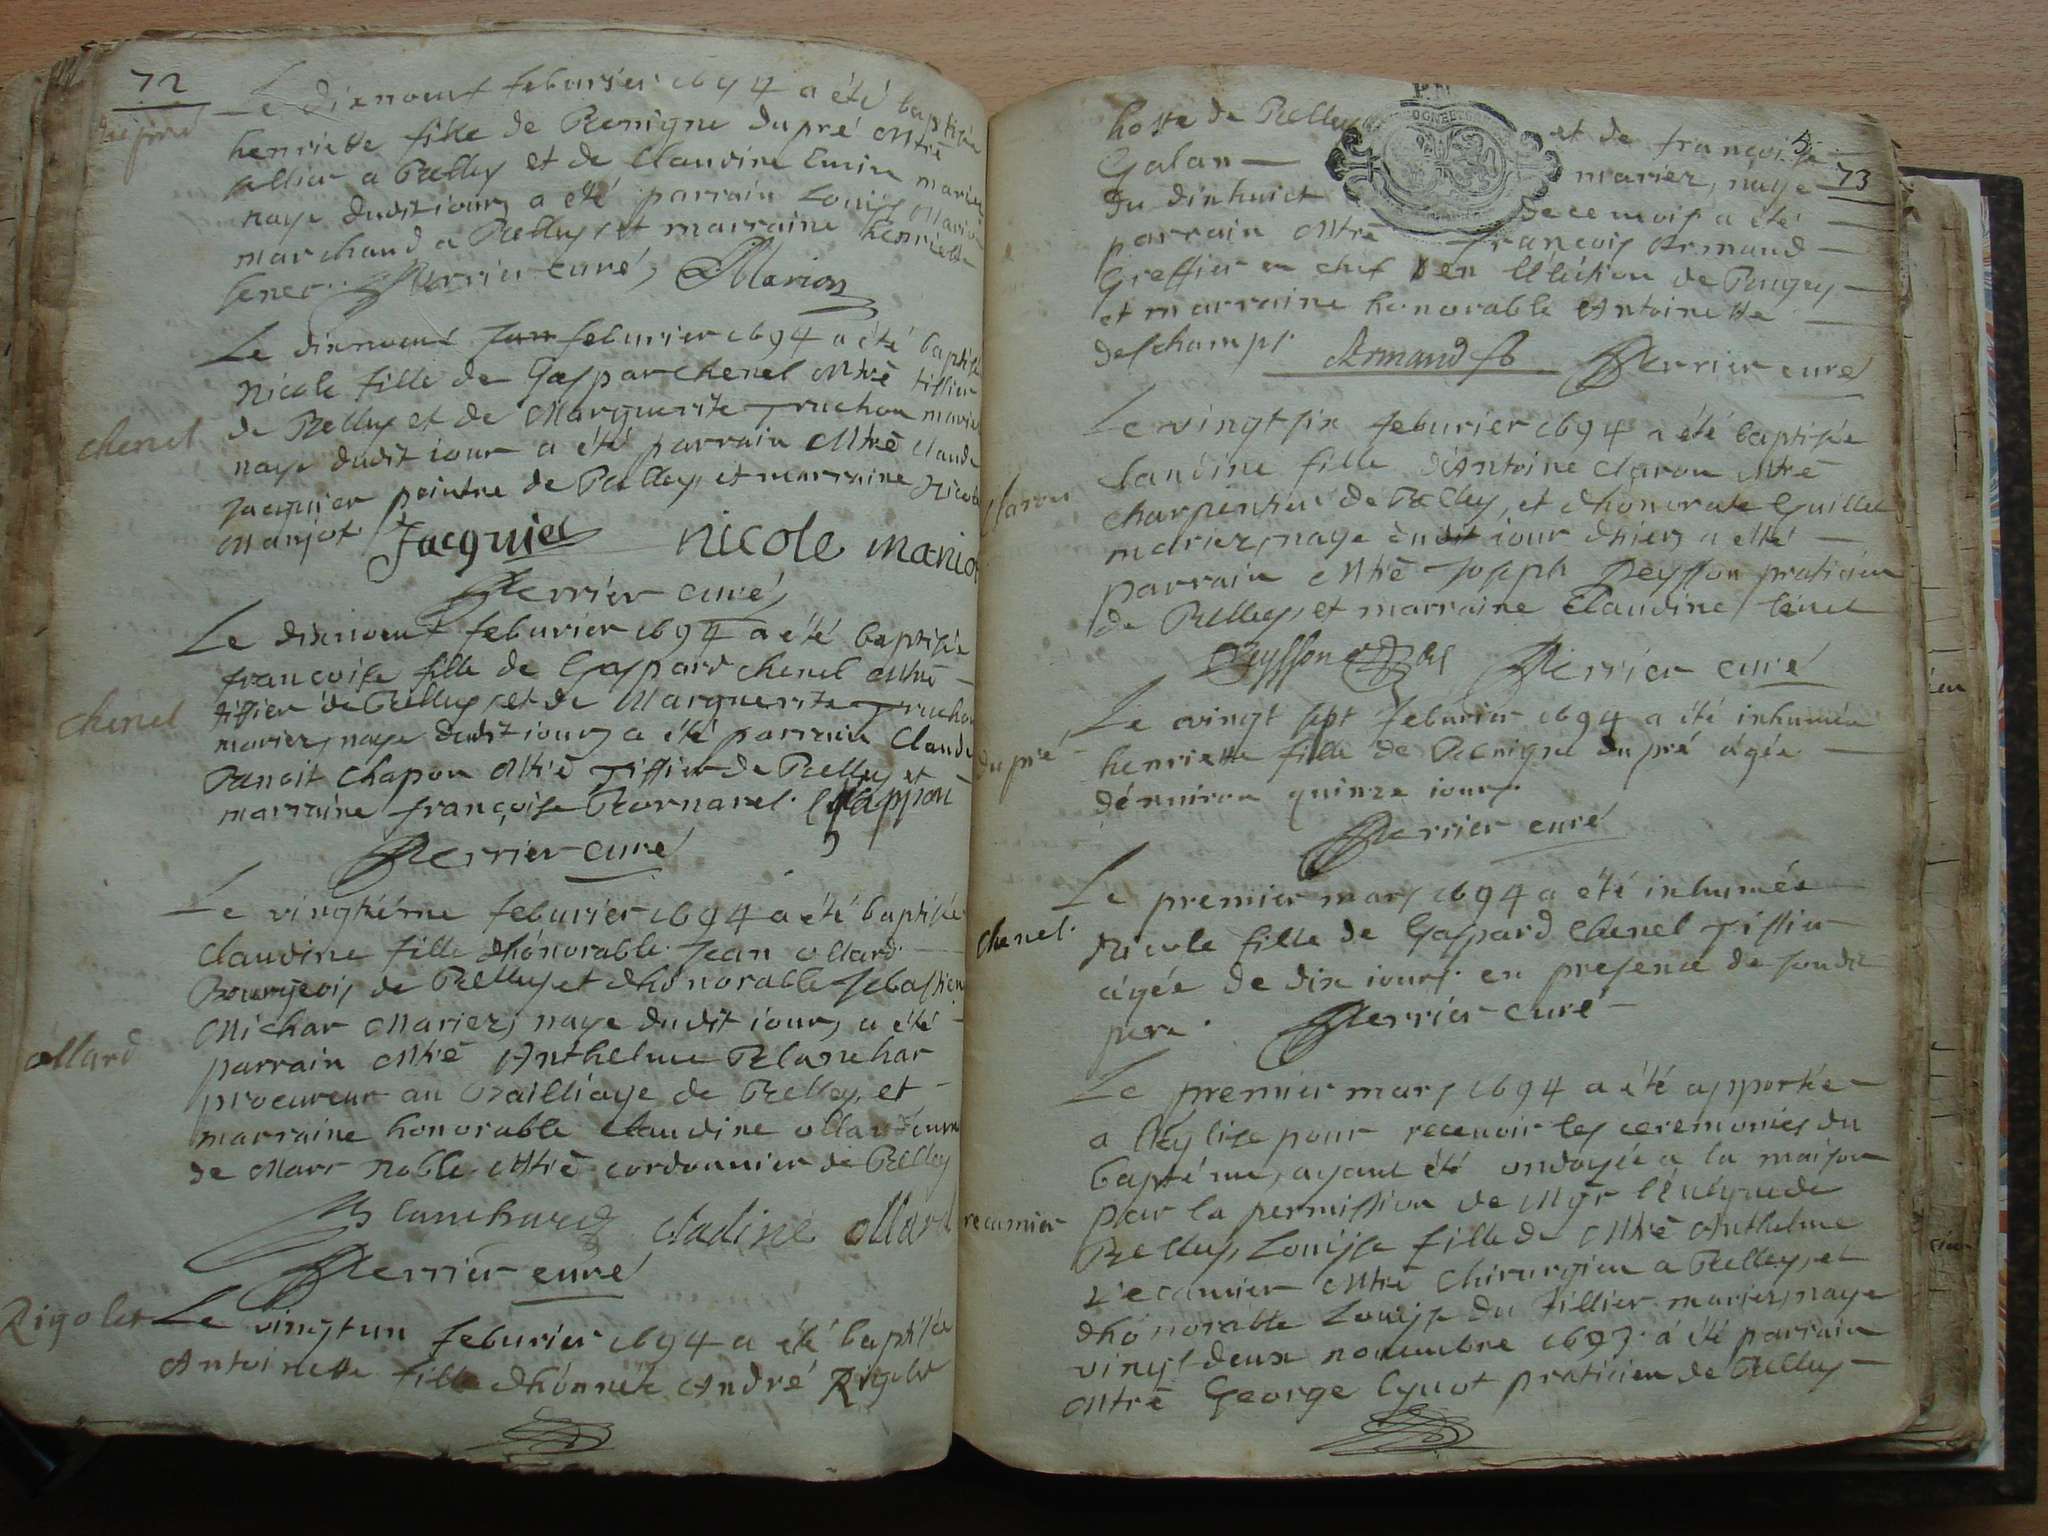 72
dupré
Le dixneuf feburier 1694 a été baptisée
henriette fille de Benigne dupré Mtrè
sellier a Belley et de Claudine Emin mariez
naye dudit iour, a été parrain Louis Marion
marchand a Belley, et marraine henriette
Perrier curé, Marion
Le dixneuf Jan feburier 1694 a été baptisée
Nicole fille de Gaspar chenel Mtrè tissier
de Belley et de Marguerite Truchon mariez
chenel
naye dudit iour a été parrain Mtrè Claude
Jacquier peintre de Belley, et marraine Nicole
Manjot. Jacquier nicole maniot
Perrier curé,
Le dixneuf feburier 1694 a été baptisée
françoise fille de Gaspard chenel Mtrè
tissier de Belley, et de Marguerite Truchon
chenel
mariez, naye dudit iour, a été parrain Claude
Benoit Chapon Mtrè Tissier de Belley, et
marraine françoise Bornarel. Chappon
Perrier curé
Le vingtiéme feburier 1694 a été baptisée
Claudine fille d'honorable Jean ollard
Bourgeois de Belley et d'honorable Sebastienne
Michar Mariez, naye dudit iour, a été
ollard
parrain Mtrè Anthelme Blanchar
procureur au Bailliage de Belley, et
marraine honorable Claudine ollar femme
de Marc Noble Mtrè cordonnier de Belley
Blanchard cladine ollard
Perrier curé
Rigolet
Le vingtun feburier 1694 a été baptisée
Antoinette fille d'honnete André Rigolet
hoste de Belley et de françoise
5
73
Galan mariez, naye
du dixhuict de ce mois a été
parrain Mtrè françois Armand
Greffier en chef en l'élection de Bugey
et marraine honorable Antoinette
deschamps. Armand Perrier curé
Le vingt six feburier 1694 a été baptisée
Claudine fille d'Antoine Claron Mtrè
Claron
charpentier de Belley, et d'honorate Guillet
mariez, naye dudit iour d'hier, a été
parrain Mtrè Joseph Peysson praticien
de Belley, et marraine Claudine
Peysson Perrier curé
Le vingt sept feburier 1694 a été inhumée
dupré
henriette fille de Benigne dupré agée
d'enuiron quinze iours.
Perrier curé
Le premier mars 1694 a été inhumée
chenel.
Nicole fille de Gaspard Chenel Tissier
agée de dix iours. en presence de sondit
pere. Perrier curé
Le premier mars 1694 a été apportée
a l'eglise pour receuoir les ceremonies du
baptéme, ayant été ondoyée a la maison
par la permission de Mgr l'éuéque de
recamier
Belley, Louise fille de Mtrè Anthelme
recamier Mtrè Chirurgien a Belley, et
d'honorable Louise du Tillier mariez, naye
vingt deux nouembre 1693. a été parrain
Mtrè George Cyuot praticien de Belley